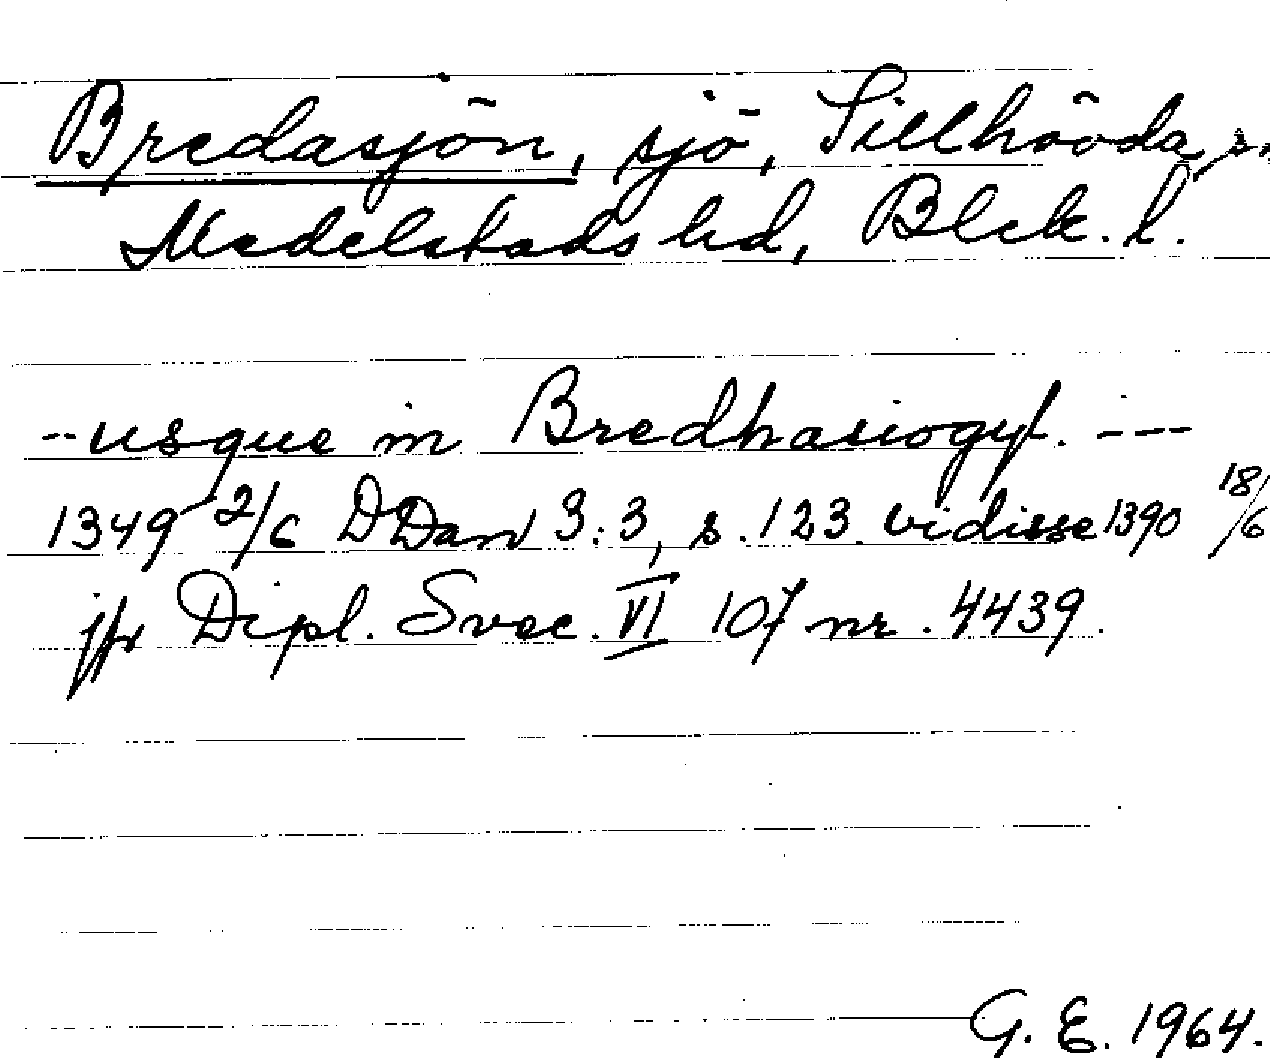 Bredasjön, sjö, Sillhövda sn
Medelstads hd, Blek. l.
-- usque in Bredhasiogyl. ---
1349 2/6 DDan 3:3, s. 123. vidisse 1390 18/6
jfr Dipl. Svec. VI 107 nr. 4439.
G. E. 1964.